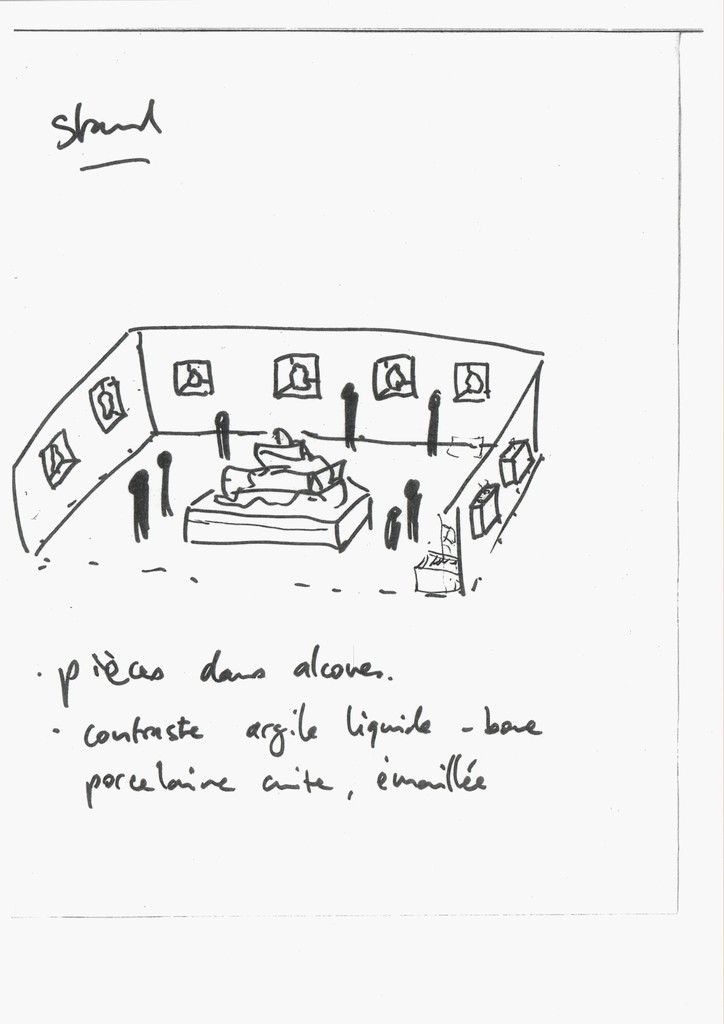 stand
· pièces dans alcoves.
· contraste argile liquide - boue
porcelaine cuite, émaillée